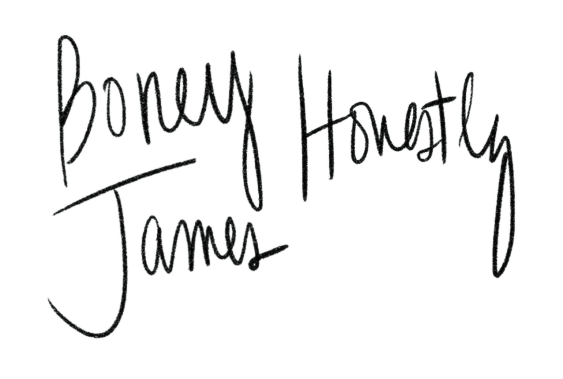 Boney Honestly
James